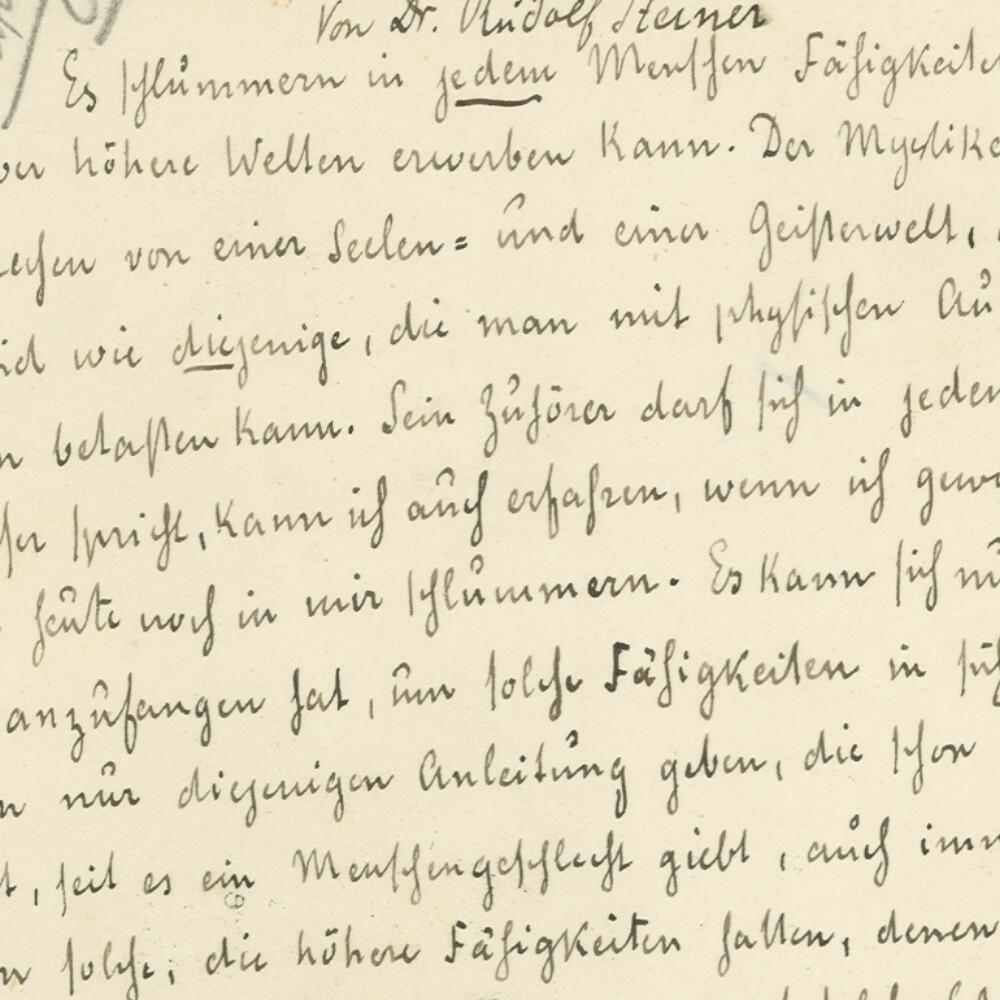 Von Dr. Rudolf Steiner
Es schlummern in jedem Menschen Fähigkeite
ber höhere Welten erwerben kann. Der Mystike
rechen von einer Seelen= und einer Geisterwelt,
ind wie diejenige, die man mit physischen Au
n betasten kann. Sein Zuhörer darf sich in jedem
ser spricht, kann ich auch erfahren, wenn ich gewi
heute noch in mir schlummern. Es kann sich nu
anzufangen hat, um solche Fähigkeiten in sich
n nur diejenigen Anleitung geben, die schon
t, seit es ein Menschengeschlecht giebt, auch imm
n solche, die höhere Fähigkeiten hatten, denen